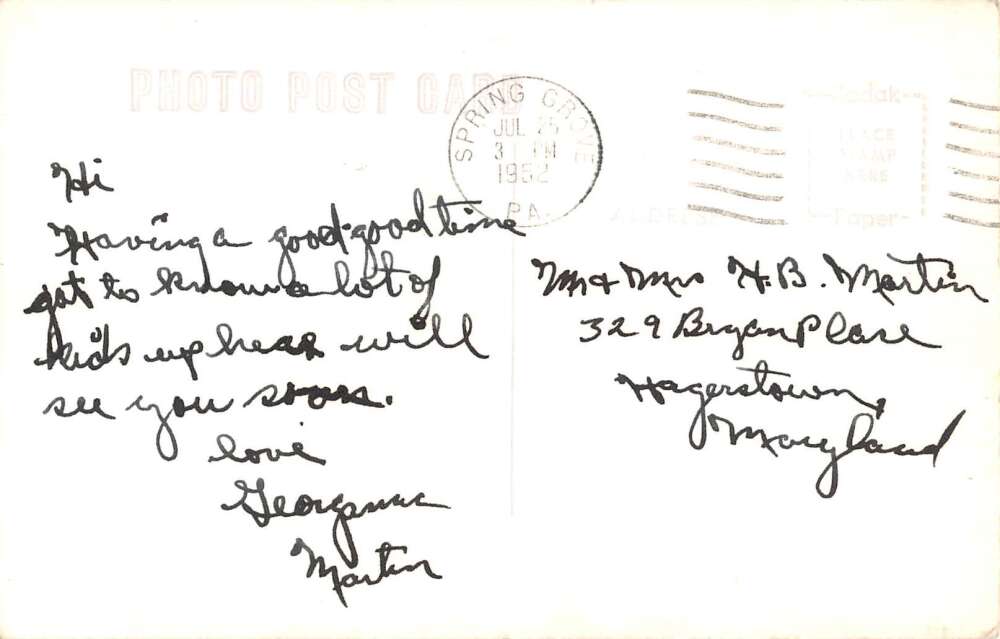 PHOTO POST CARD
SPRING GROVE
JUL 25
3 PM
1952
PA.
Kodak
PLACE
STAMP
HERE
Paper
ADDRESS
Hi
Having a good-good time
got to know a lot of
kids up hear will
see you soon.
love
Martin
Mr + Mrs H. B. Martin
329 Bryan Place
Hagerstown,
Maryland